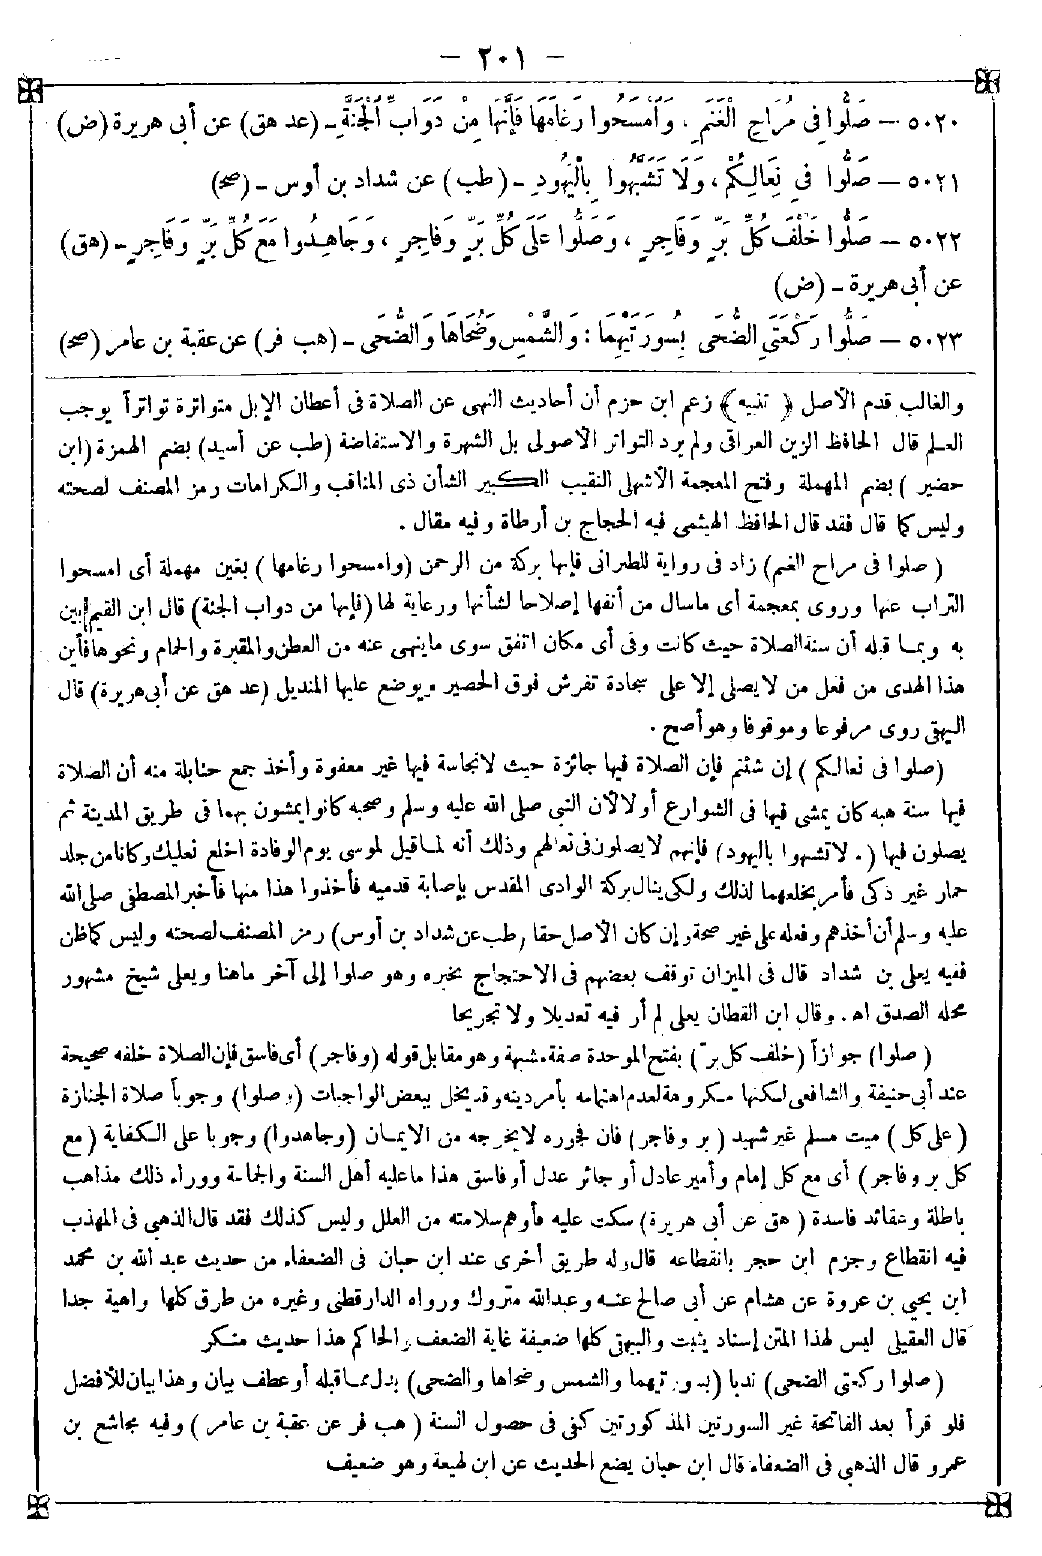 – ٢٠١ –
٥٠٢٠ – صَلُّوا فِى مُرَاحِ الْغَنَمِ ، وَامْسَحُوا رَغَامَهَا فَإِنَّهَا مِنْ دَوَابِّ الْجَنَّةِ – (عد هق) عن أبى هريرة (ض)
٥٠٢١ – صَلُّوا فِى نِعَالِكُمْ، وَلَا تَشَبَّهُوا بِالْيَهُودِ – (طب) عن شداد بن أوس – (صح)
٥٠٢٢ – صَلُّوا خَلْفَ كُلِّ بَرٍّ وَفَاجِرٍ ، وَصَلُّوا عَلَى كُلِّ بَرٍّ وَفَاجِرٍ ، وَجَاهِدُوا مَعَ كُلِّ بَرٍّ وَفَاجِرٍ – (هق)
عن أبى هريرة – (ض)
٥٠٢٣ – صَلُّوا رَكْعَتَىِ الضُّحَى بِسُورَتَيْهِمَا : وَالشَّمْسِ وَضُحَاهَا وَالضُّحَى – (هب فر) عن عقبة بن عامر (صح)
والغالب قدم الأصل ﴿ تنبيه ﴾ زعم ابن حزم أن أحاديث النهى عن الصلاة فى أعطان الإبل متواترة تواتراً يوجب
العلم قال الحافظ الزين العراقى ولم يرد التواتر الأصولى بل الشهرة والاستفاضة (طب عن أسيد) بضم الهمزة (ابن
حضير ) بضم المهملة وفتح المعجمة الأشهلى النقيب الكبير الشأن ذى المناقب والكرامات رمز المصنف لصحته
وليس كما قال فقد قال الحافظ الهيثمى فيه الحجاج بن أرطاة وفيه مقال .
( صلوا فى مراح الغنم) زاد فى رواية للطبرانى فإنها بركة من الرحمن (وامسحوا رغامها ) بغين مهملة أى امسحوا
التراب عنها وروى بمعجمة أى ماسال من أنفها إصلاحا لشأنها ورعاية لها (فإنها من دواب الجنة) قال ابن القيم بين
به وبما قبله أن سنة الصلاة حيث كانت وفى أى مكان اتفق سوى ماينهى عنه من العطن والمقبرة والحمام ونحوها فأين
هذا الهدى من فعل من لا يصلى إلا على سجادة تفرش فوق الحصير ويوضع عليها المنديل (عد هق عن أبى هريرة) قال
البيهقى روى مرفوعا وموقوفا وهو أصح .
(صلوا فى نعالكم ) إن شئتم فإن الصلاة فيها جائزة حيث لانجاسة فيها غير معفوة وأخذ جمع حنابلة منه أن الصلاة
فيها سنة هبه كان يمشى فيها فى الشوارع أو لا لأن النبى صلى الله عليه وسلم وصحبه كانوا يمشون بهما فى طريق المدينة ثم
يصلون فيها (ولا تشبهوا باليهود) فإنهم لا يصلون فى نعالهم وذلك أنه لما قيل لموسى يوم الوفادة اخلع نعليك وكانا من جلد
حمار غير ذكى فأمر بخلعهما لذلك ولكى ينال بركة الوادى المقدس بإصابة قدميه فأخذوا هذا منها فأخبر المصطفى صلى الله
عليه وسلم أن أخذهم وفعله على غير صحة وإن كان الأصل حقا (طب عن شداد بن أوس) رمز المصنف لصحته وليس كما ظن
ففيه يعلى بن شداد قال فى الميزان توقف بعضهم فى الاحتجاج بخبره وهو صلوا إلى آخر ماهنا ويعلى شيخ مشهور
محله الصدق اه . وقال ابن القطان يعلى لم أر فيه تعديلا ولا تجريحا
( صلوا) جوازاً (خلف كل برّ) بفتح الموحدة صفة مشبهة وهو مقابل قوله (وفاجر) أى فاسق فإن الصلاة خلفه صحيحة
عند أبى حنيفة والشافعى لكنها مكروهة لعدم اهتمامه بأمر دينه وقد يخل ببعض الواجبات (وصلوا) وجوباً صلاة الجنازة
( على كل ) ميت مسلم غير شهيد ( بر وفاجر) فان فجوره لايخرجه من الايمان (وجاهدوا) وجوبا على الكفاية (مع
كل بر وفاجر) أى مع كل إمام وأمير عادل أو جائر عدل أو فاسق هذا ما عليه أهل السنة والجماعة ووراء ذلك مذاهب
باطلة وعقائد فاسدة ( هق عن أبى هريرة) سكت عليه فأوهم سلامته من العلل وليس كذلك فقد قال الذهبى فى المهذب
فيه انقطاع وجزم ابن حجر بانقطاعه قال وله طريق أخرى عند ابن حبان فى الضعفاء من حديث عبد الله بن محمد
ابن يحيى بن عروة عن هشام عن أبى صالح عنه وعبدالله متروك ورواه الدارقطنى وغيره من طرق كلها واهية جدا
قال العقيلى ليس لهذا المتن إسناد يثبت والبيهقى كلها ضعيفة غاية الضعف والحاكم هذا حديث منكر
( صلوا ركعتى الضحى) ندبا (بسورتيهما والشمس وضحاها والضحى) بدل مما قبله أو عطف بيان وهذا بيان للأفضل
فلو قرأ بعد الفاتحة غير السورتين المذكورتين كفى فى حصول السنة ( هب فر عن عقبة بن عامر ) وفيه مجاشع بن
عمرو قال الذهبى فى الضعفاء قال ابن حبان يضع الحديث عن ابن لهيعة وهو ضعيف